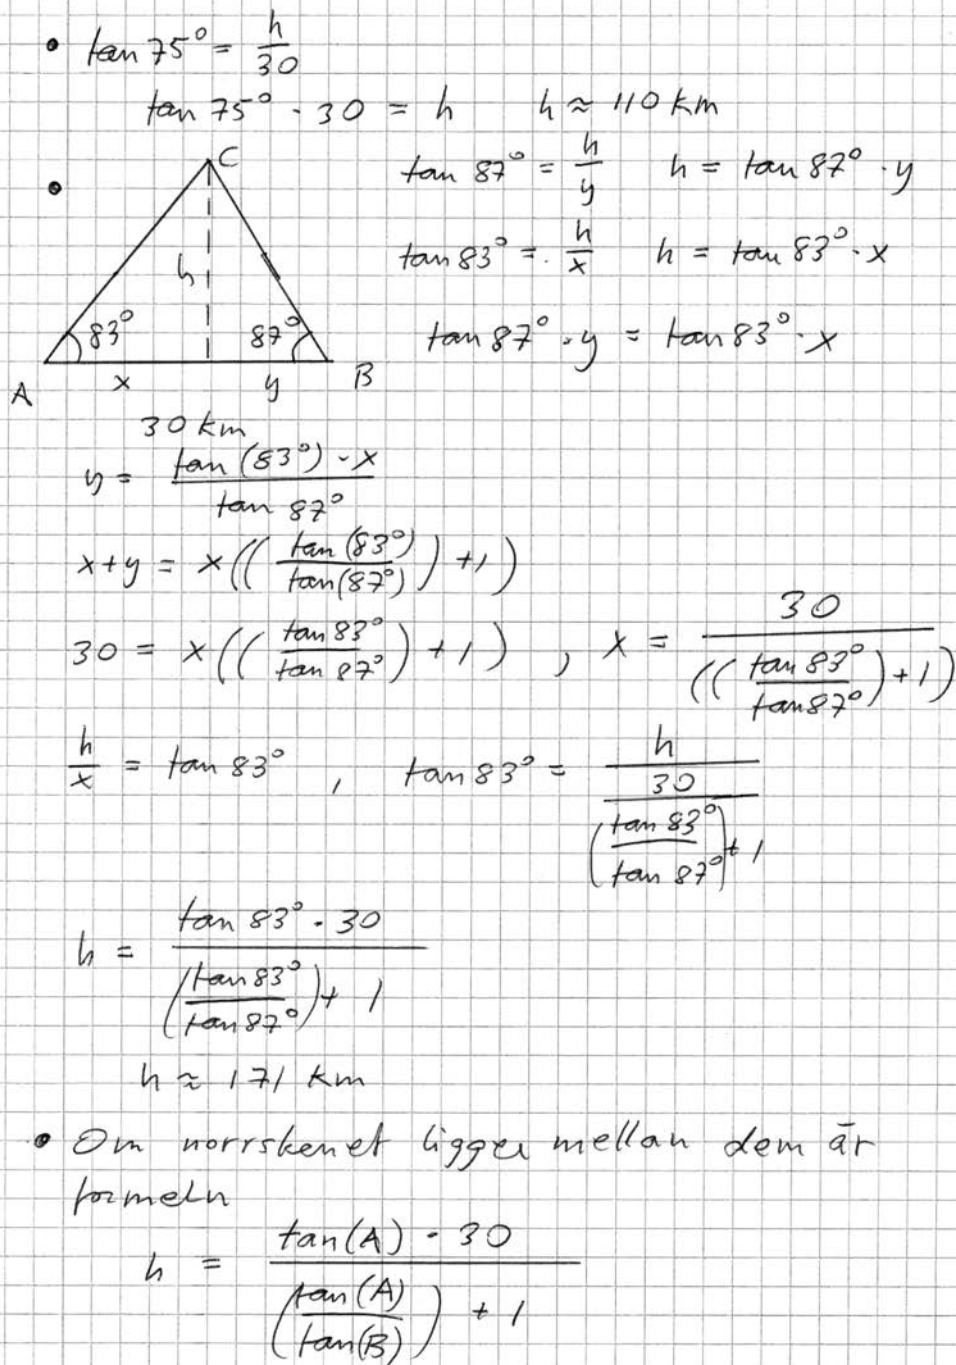 • tan 75° = h/30
tan 75° · 30 = h   h ≈ 110 km
•
C
h
83°
87°
A
x
y
B
30 km
tan 87° = h/y   h = tan 87° · y
tan 83° = h/x   h = tan 83° · x
tan 87° · y = tan 83° · x
y = tan (83°) · x / tan 87°
x + y = x((tan (83°)/tan (87°)) + 1)
30 = x((tan 83°/tan 87°) + 1) , x = 30/((tan 83°/tan 87°) + 1)
h/x = tan 83° , tan 83° = h/(30/((tan 83°/tan 87°) + 1))
h = tan 83° · 30/((tan 83°/tan 87°) + 1)
h ≈ 171 km
• Om norrskenet ligger mellan dem är
formeln
h = tan(A) · 30/((tan(A)/tan(B)) + 1)